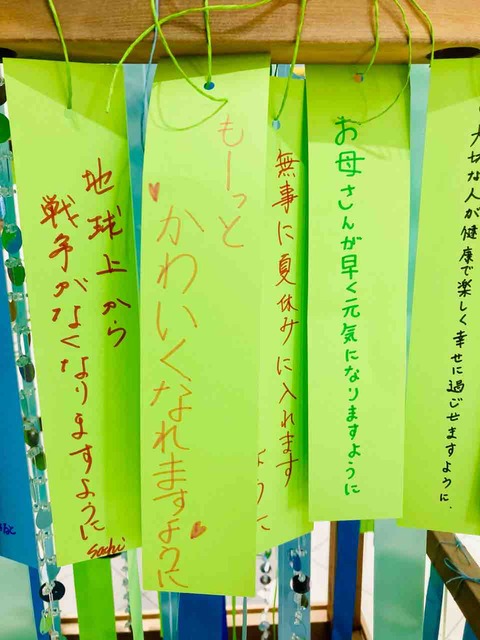 地球上から
戦争がなくなりますように
Sachi
もーっと
かわいくなれますように
無事に夏休みに入れます
ように
お母さんが早く元気になりますように
大切な人が健康で楽しく幸せに過ごせますように、